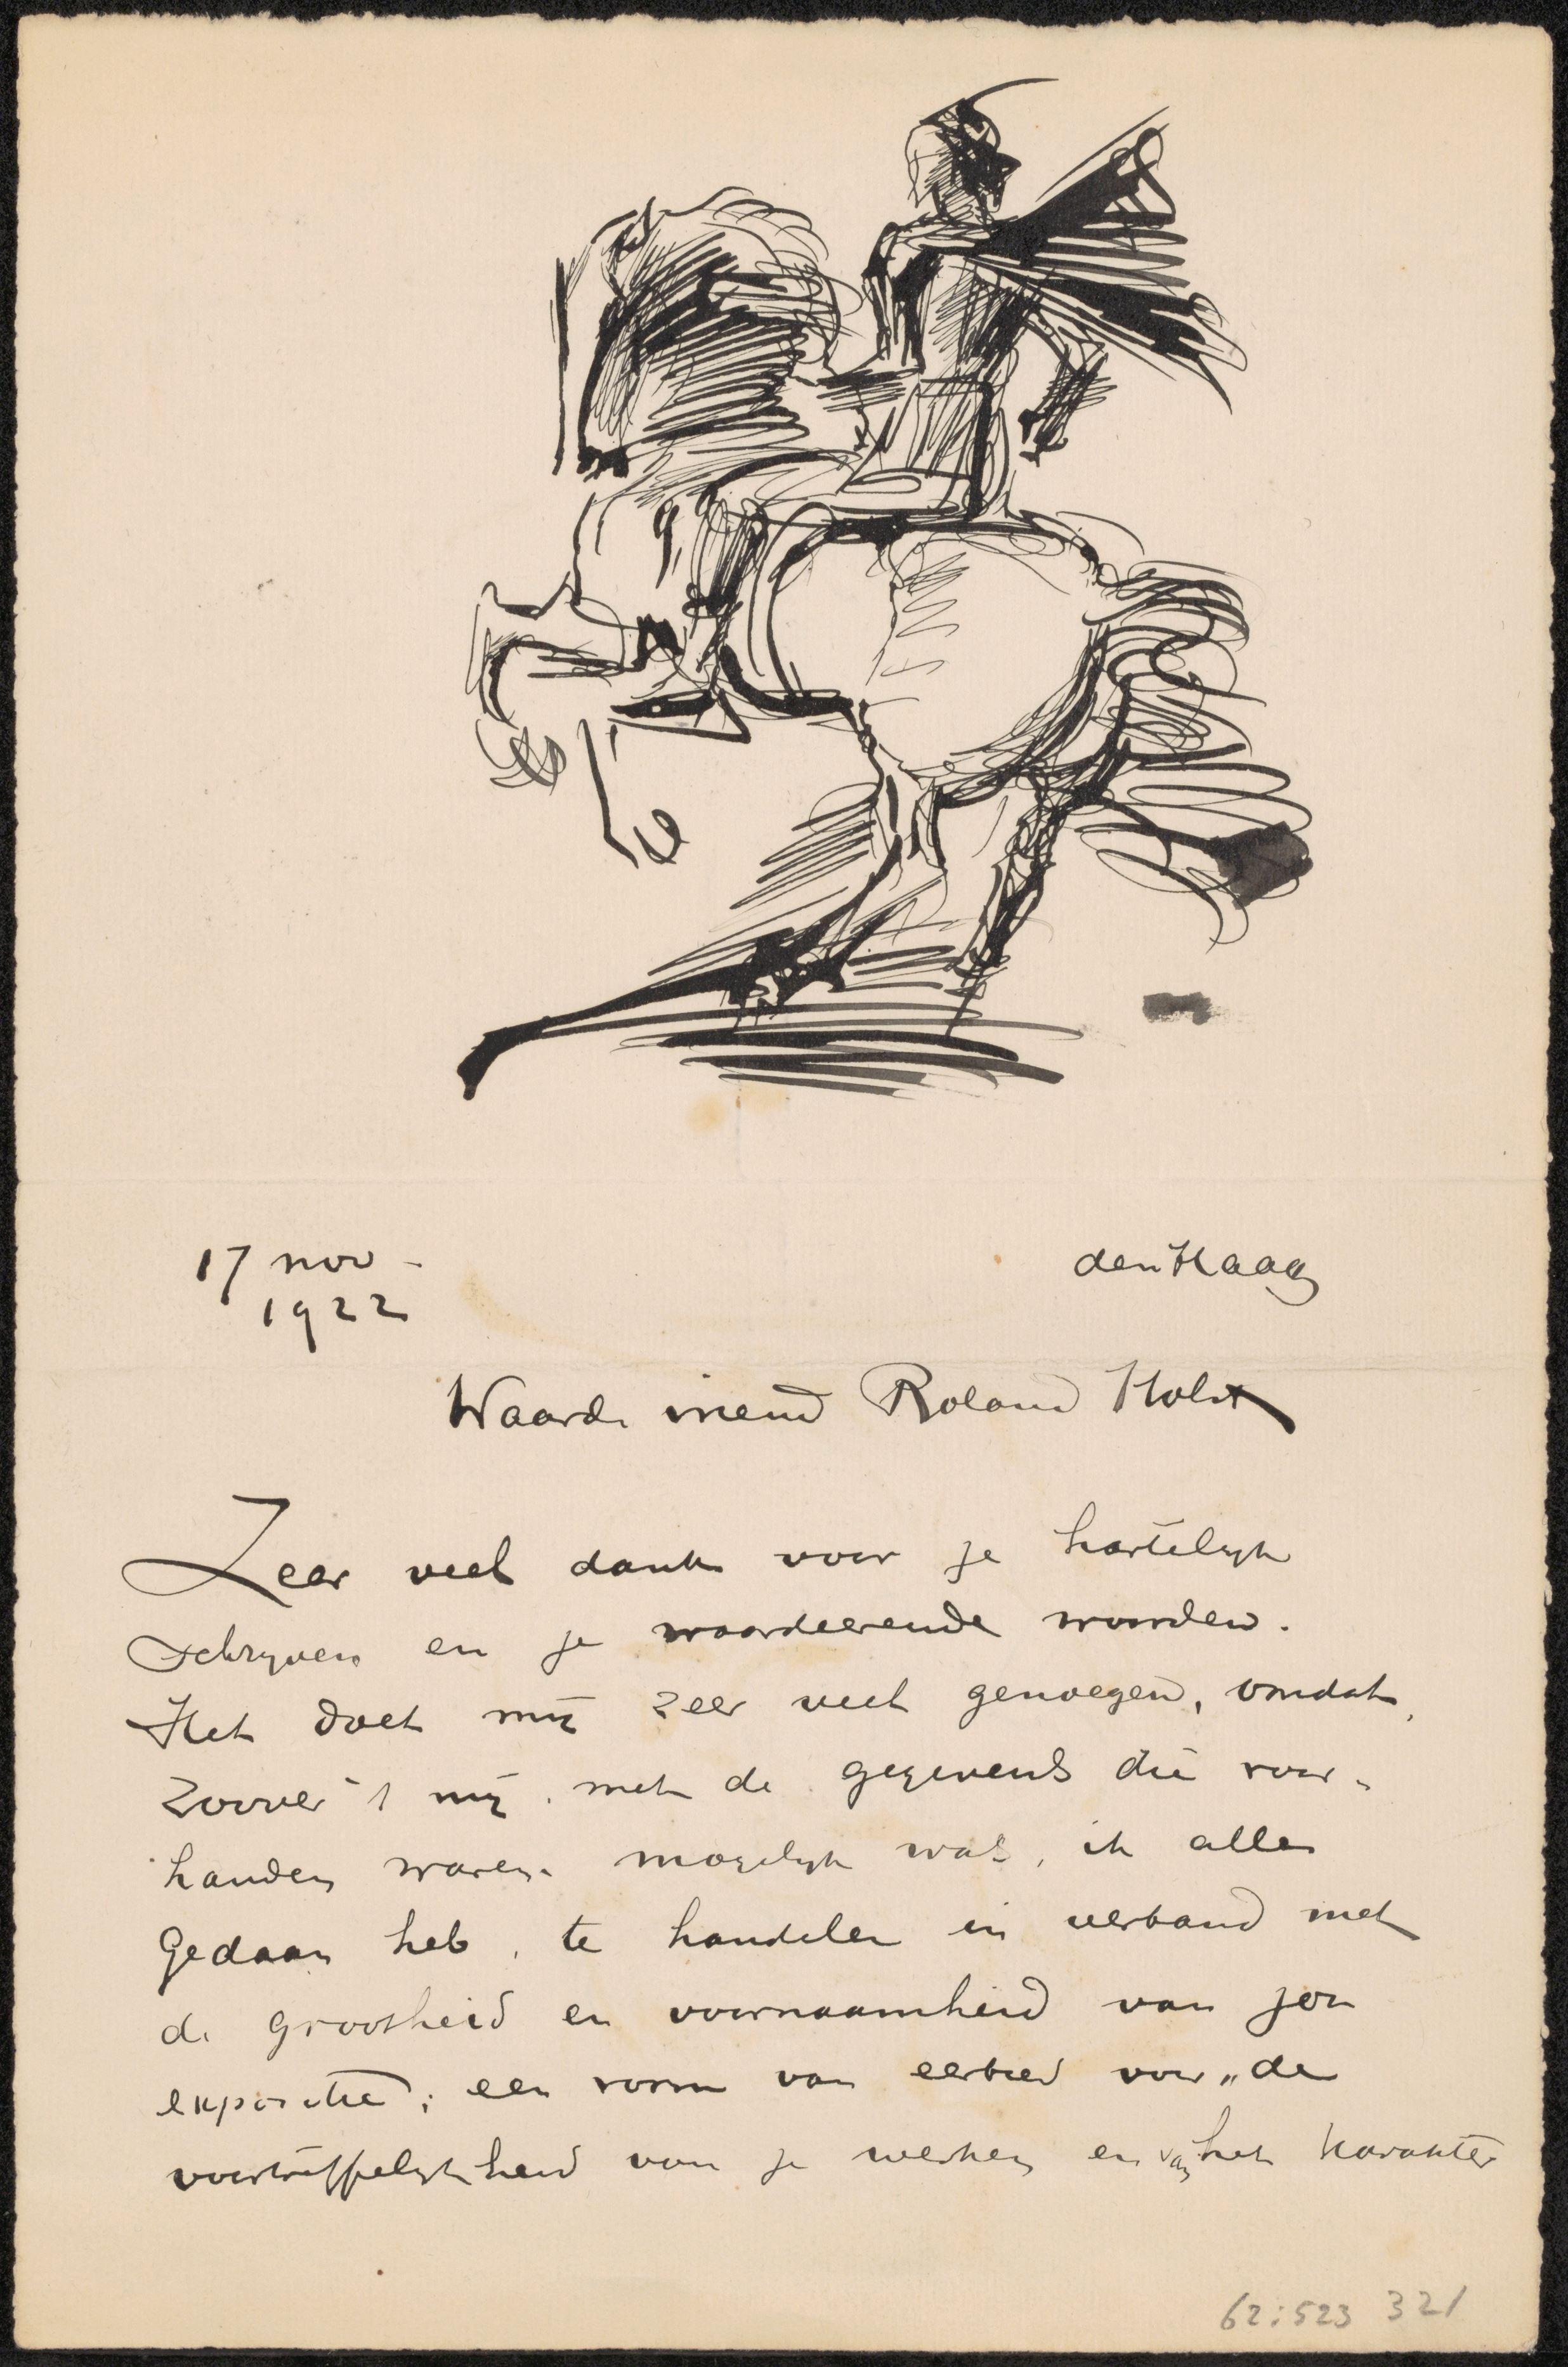 17 nov -
1922
den Haag
Waarde vriend Roland Holst
Zeer veel dank voor je hartelijk
schrijven en je waardeerende woorden.
Het doet mij zeer veel genoegen, omdat,
zoover 't mij, met de gegevens die voor-
handen waren mogelijk was, ik alles
gedaan heb, te handelen in verband met
de grootheid en voornaamheid van jou
expositie; een vorm van eerbied voor „de
voortreffelijkheid van je werken en van het karakter
62:523 321